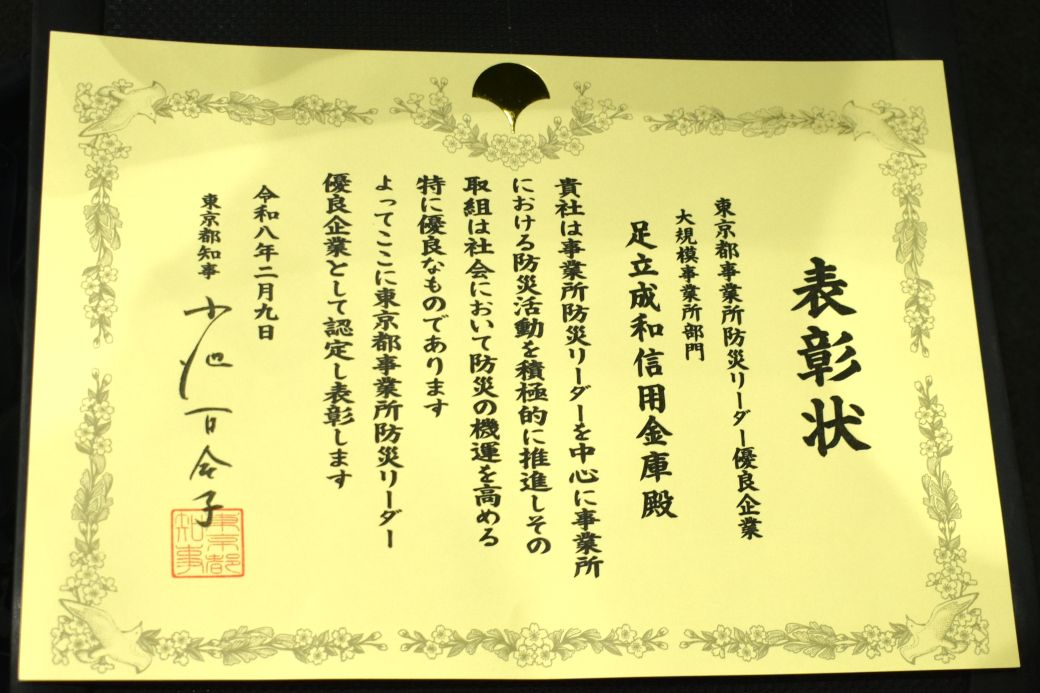 表彰状
東京都事業所防災リーダー優良企業
大規模事業所部門
足立成和信用金庫殿
貴社は事業所防災リーダーを中心に事業所
における防災活動を積極的に推進しその
取組は社会において防災の機運を高める
特に優良なものであります
よってここに東京都事業所防災リーダー
優良企業として認定し表彰します
令和八年二月九日
東京都知事 小池百合子
東京都知事